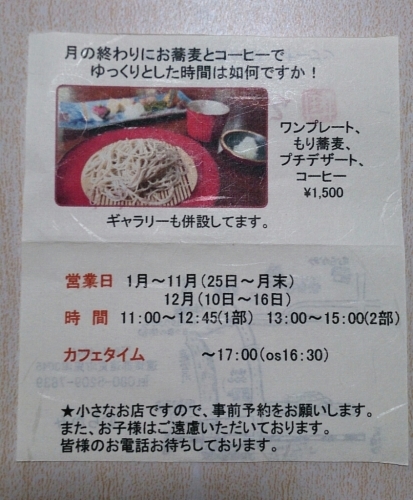 月の終わりにお蕎麦とコーヒーで
ゆっくりとした時間は如何ですか！
ワンプレート、
もり蕎麦、
プチデザート、
コーヒー
¥1,500
ギャラリーも併設してます。
営業日 1月〜11月(25日〜月末)
12月(10日〜16日)
時 間 11:00〜12:45(1部) 13:00〜15:00(2部)
カフェタイム 〜17:00(os16:30)
★小さなお店ですので、事前予約をお願いします。
また、お子様はご遠慮いただいております。
皆様のお電話お待ちしております。